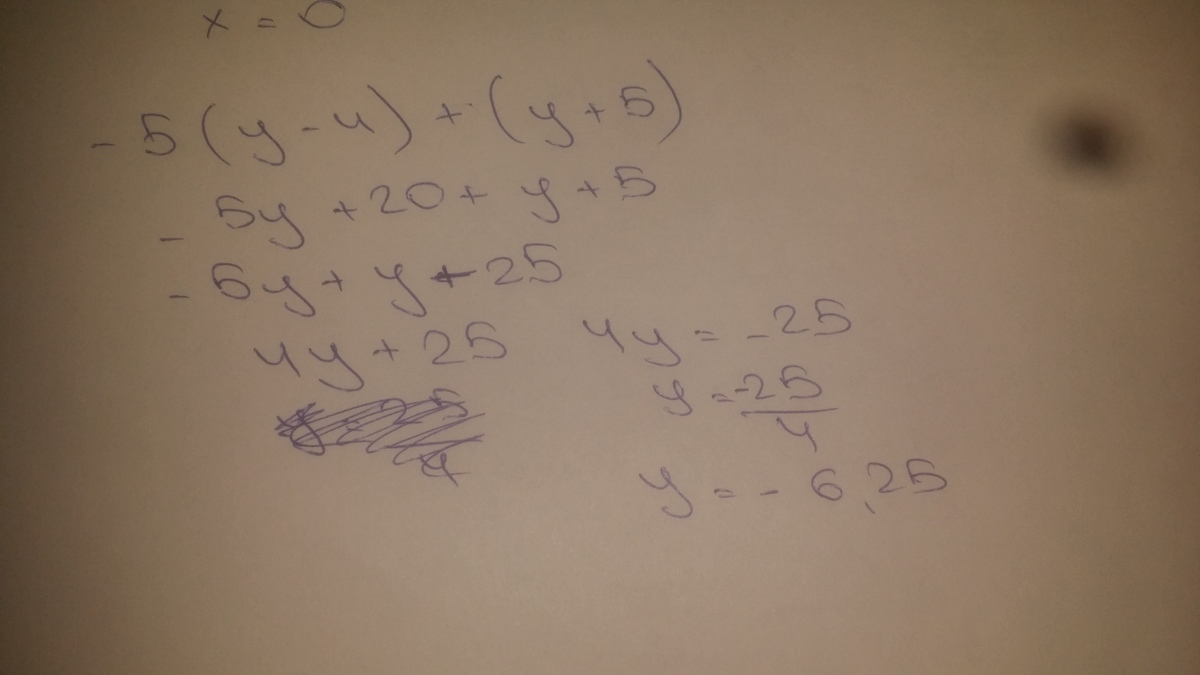 x = 0
- 5 (y - 4) + (y + 5)
- 5y + 20 + y + 5
- 5y + y + 25
4y + 25
4y = - 25
y = -25/4
y = - 6,25